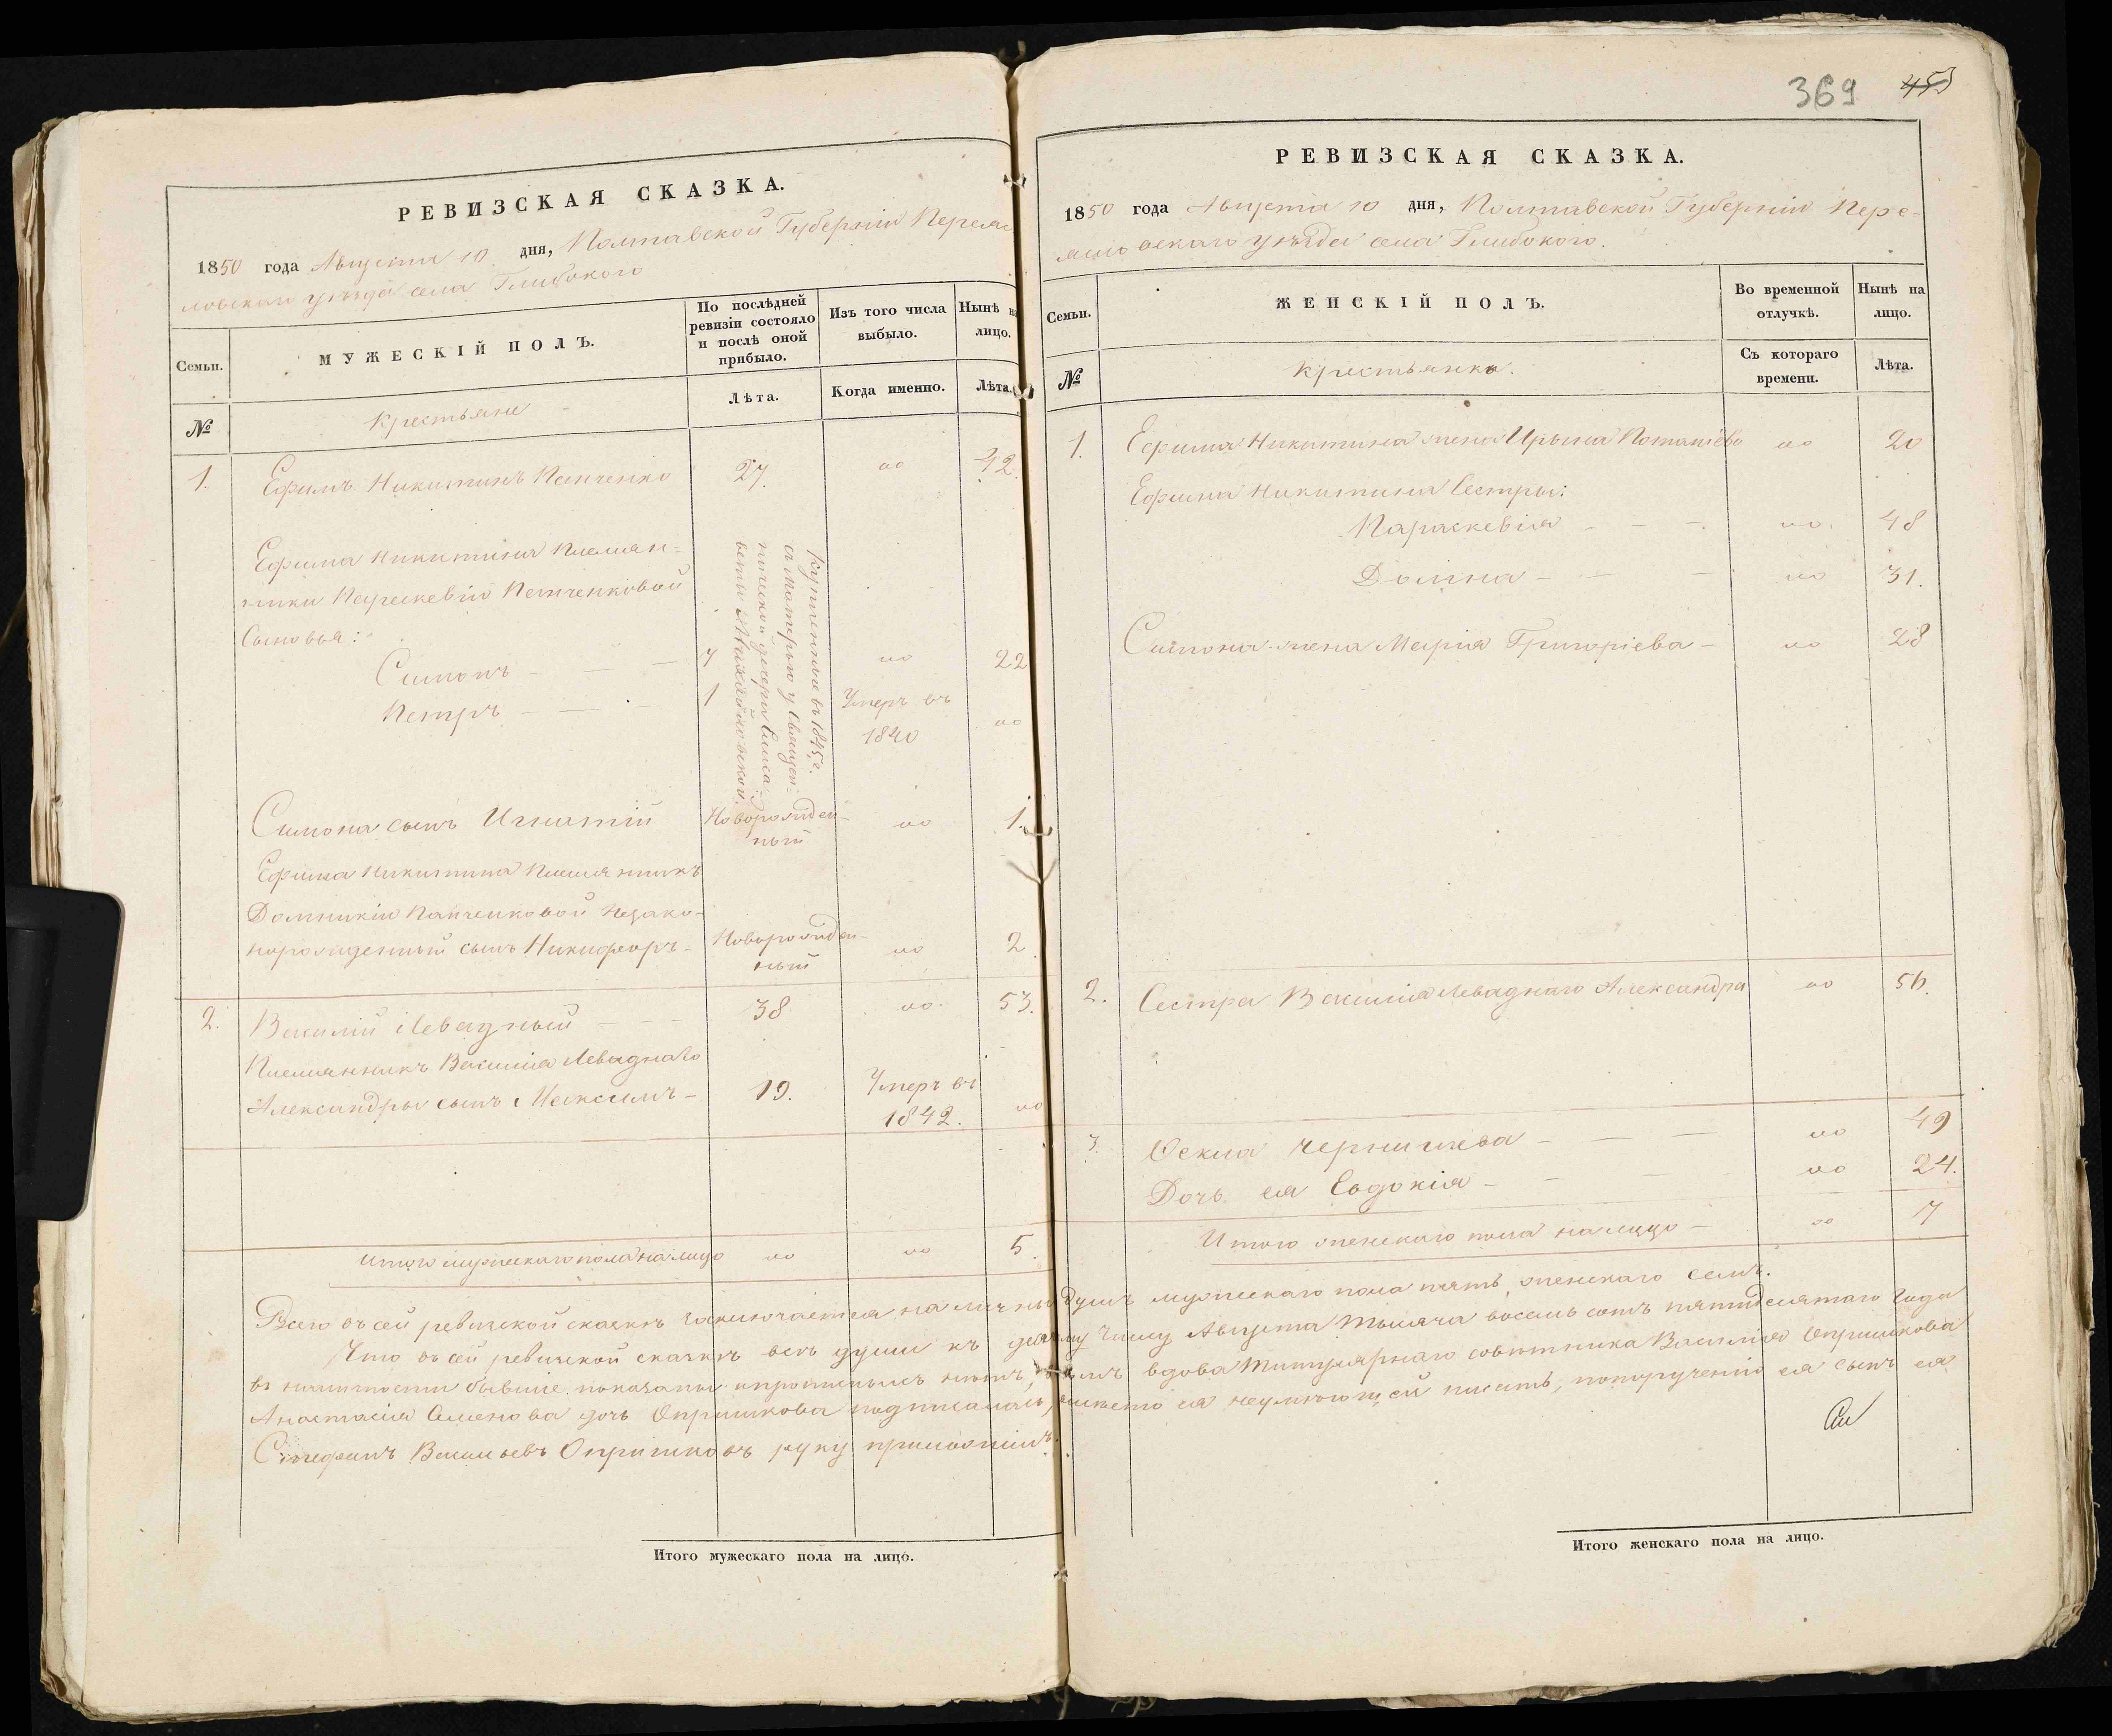 РЕВИЗСКАЯ СКАЗКА.
1850 года Августа 10 дня, Полтавской Губерніи Переяс
ловскаго уѣзда села Глибокого
Семьи.
МУЖЕСКІЙ ПОЛЪ.
По послѣдней
ревизіи состояло
и послѣ оной
прибыло.
Изъ того числа
выбыло.
Нынѣ на
лицо.
№
Крестьяне
Лѣта.
Когда именно.
Лѣта.
1. Ефимъ Никитинъ Панченко 27. „ 42.
Ефима Никитина Племян=
ники Параскевіи Панченковой
Сыновья:
Симонъ — — 7 „ 22
Петръ — — 1 Умеръ въ
1840 „
Купленные въ 1845 г.
съ Матерью у Священ=
нической дочери
Симона сынъ Игнатій Новорожден=
ный „ 1.
Ефима Никитина Племянникъ
Домникіи Панченковой Незако=
норожденный сынъ Никифоръ — Новорожден=
ный „ 2.
2. Василій Левадный — — 38 „ 53.
Племянникъ Василія Леваднаго
Александры сынъ Максимъ — 19. Умеръ въ
1842. „
Итого мужескаго пола на лицо „ „ 5.
369 453
РЕВИЗСКАЯ СКАЗКА.
1850 года Августа 10 дня, Полтавской Губерніи Пере=
ясловскаго уѣзда села Глибокого.
Семьи.
ЖЕНСКІЙ ПОЛЪ.
Во временной
отлучкѣ.
Нынѣ на
лицо.
№
Крестьянки.
Съ котораго
времени.
Лѣта.
1. Ефима Никитина жена Ирина Потапіева „ 20
Ефима Никитина Сестры:
Параскевія — — „ 48
Домна — — — „ 31.
Симона жена Марія Григоріева — „ 28
2. Сестра Василія Леваднаго Александра „ 56.
3. Фекла Чернишева — — — „ 49
Дочь ея Евдокія — — „ 24.
Итого женскаго пола на лицо — „ 7
Всего въ сей ревизской сказкѣ заключается наличныхъ душъ мужескаго пола пять, женскаго семь.
Что въ сей ревизской сказкѣ всѣ души къ десятому числу Августа тысяча восемь сотъ пятидесятаго года
въ наличности бывшіе показаны и прописныхъ нѣтъ, въ томъ вдова Титулярнаго совѣтника Василія Опришкова
Анастасія Семенова дочь Опришкова подписалась, вмѣсто ея неумѣющей писать, по порученію ея сынъ ея
Стефанъ Васильевъ Опришковъ руку приложилъ.
Итого мужескаго пола на лицо.
Итого женскаго пола на лицо.